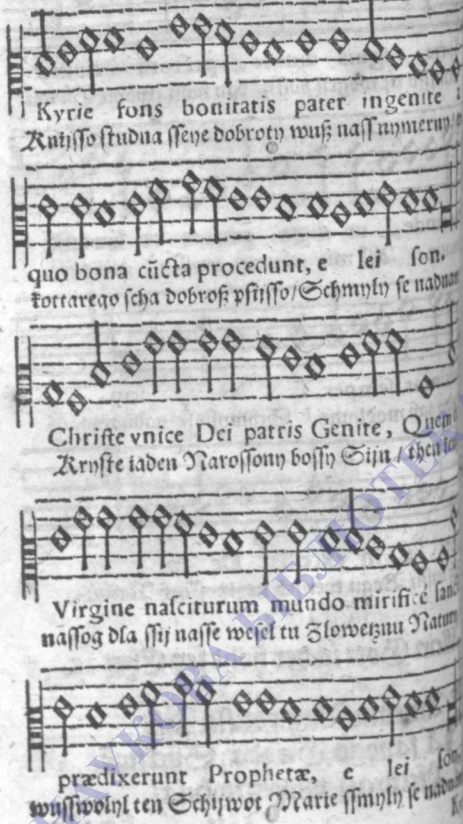 Kyrie fons bonitatis pater ingenite a
Knihsso studna sseye dobroty wuß nass nymerny
quo bona cūcta procedunt, e lei son.
kottarego scha dobroß psiisso/Schmyly se nadnam
Christe vnice Dei patris Genite, Quem d
Kryste iaden Narossony bossy Sijn / then
Virgine nasciturum mundo mirifice sanc
nassog dla ssij nasse wesel tu Zlowetznu Natur
prædixerunt Prophetæ, e lei son,
wusswolyl ten Schijwot Marie ssmyly se nadnam